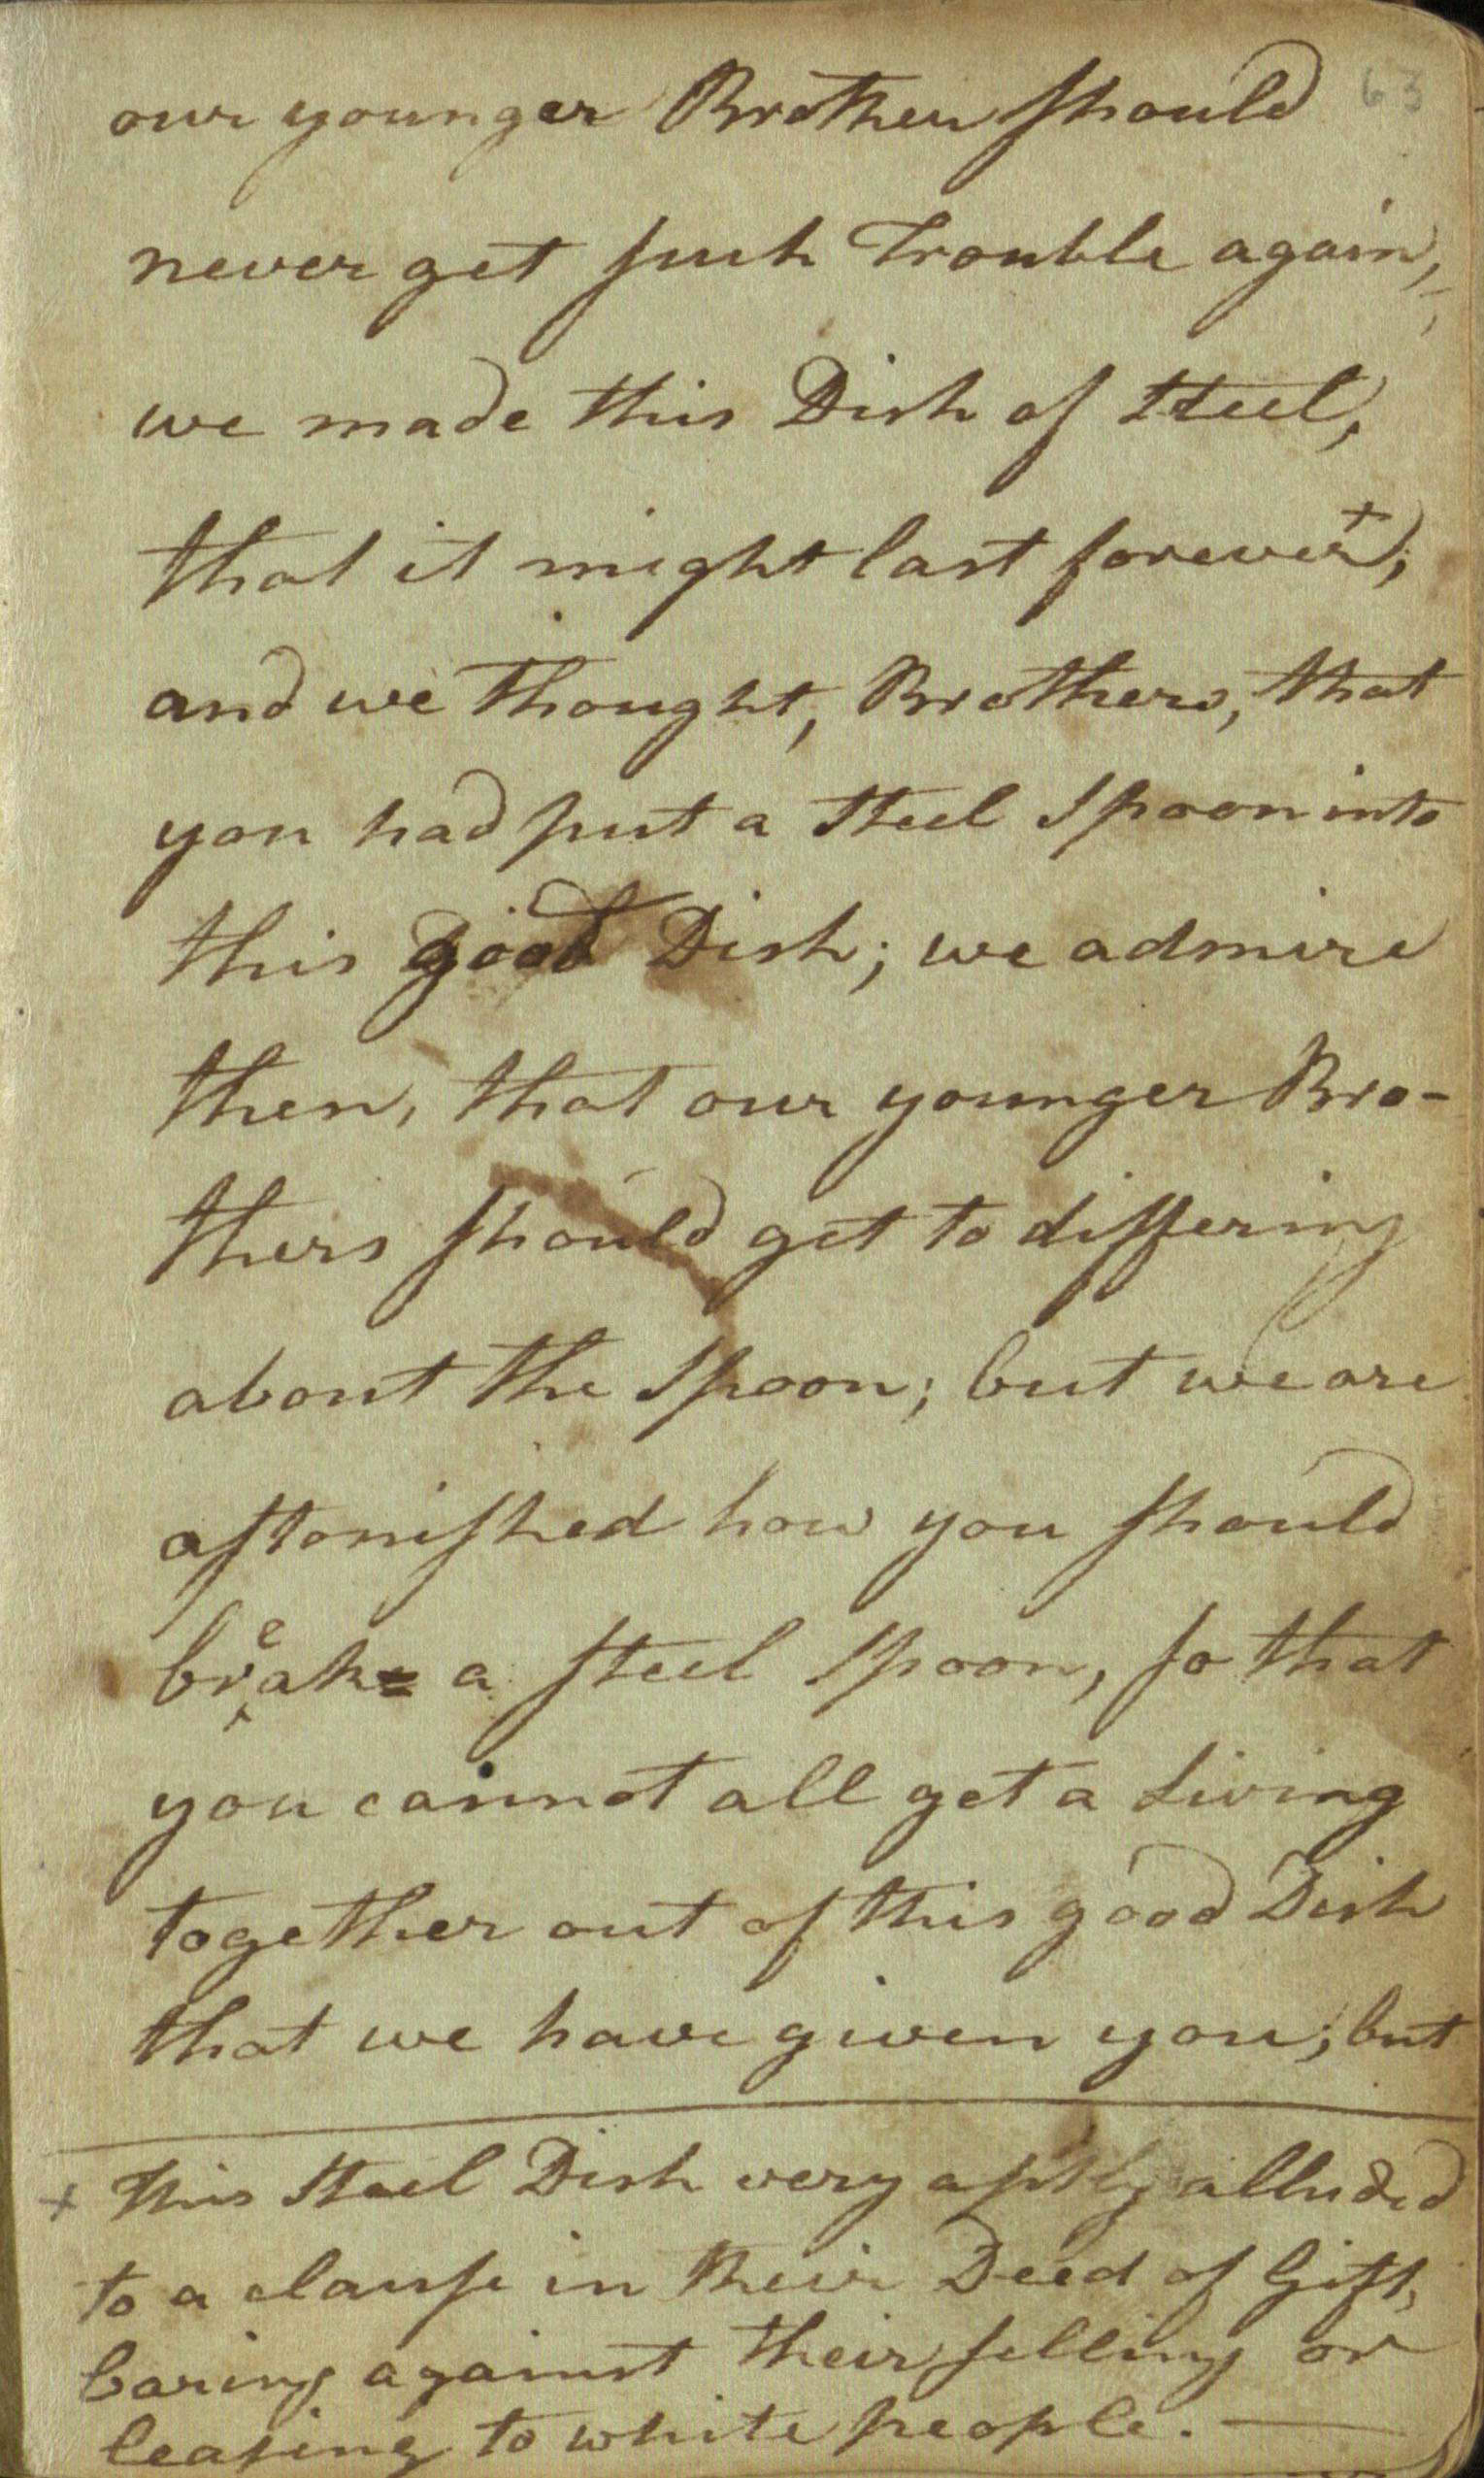 63
our younger Brothers should
never get such Trouble again,
we made this Dish of Steel,
that it might last forever+;
and we thought, Brothers, that
you had put a Steel Spoon into
this good Dish; we admire
then, that our younger Bro-
thers should get to differing
about the Spoon; but we are
astonished how you should
break a steel Spoon, so that
you cannot all get a Living
together out of this good Dish
that we have given you; but
+ This Steel Dish very aptly alluded
to a clause in their Deed of Gift,
baring against their selling or
leasing to white people. —